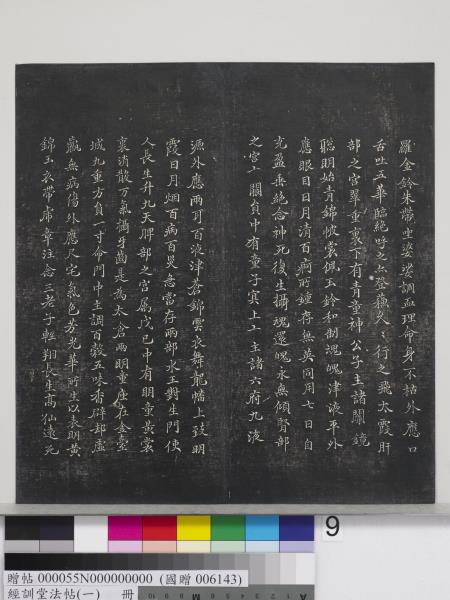 羅金鈴朱帶坐婆娑調血理命身不枯外應口
舌吐五華臨絕呼之亦登蘓久久行之飛太霞肝
部之宮翠重裏下有青童神公子主諸關鏡
聰明始青錦帔裳佩玉鈴和制魂魄津液平外
應眼目日月清百痾所鍾存無英同用七日自
充盈垂絕念神死復生攝魂還魄永無傾腎部
之宮玄闕負中有童子冥上玄主諸六府九液
源外應兩耳百液津蒼錦雲衣舞龍幡上致明
霞日月烟百病百災急當存兩部水王對生門使
人長生升九天脾部之宮屬戊己中有明童黃裳
裏消散万氣攝牙齒是為太倉兩明童座在金臺
城九重方負一寸命門中主調百穀五味香辟却虛
羸無病傷外應尺宅氣色芳光華所生以表明黃
錦玉衣帶席章注念三老子輕翔長生高仙遠死
9
贈帖 000055N000000000 (國贈 006143)
經訓堂法帖(一) 冊